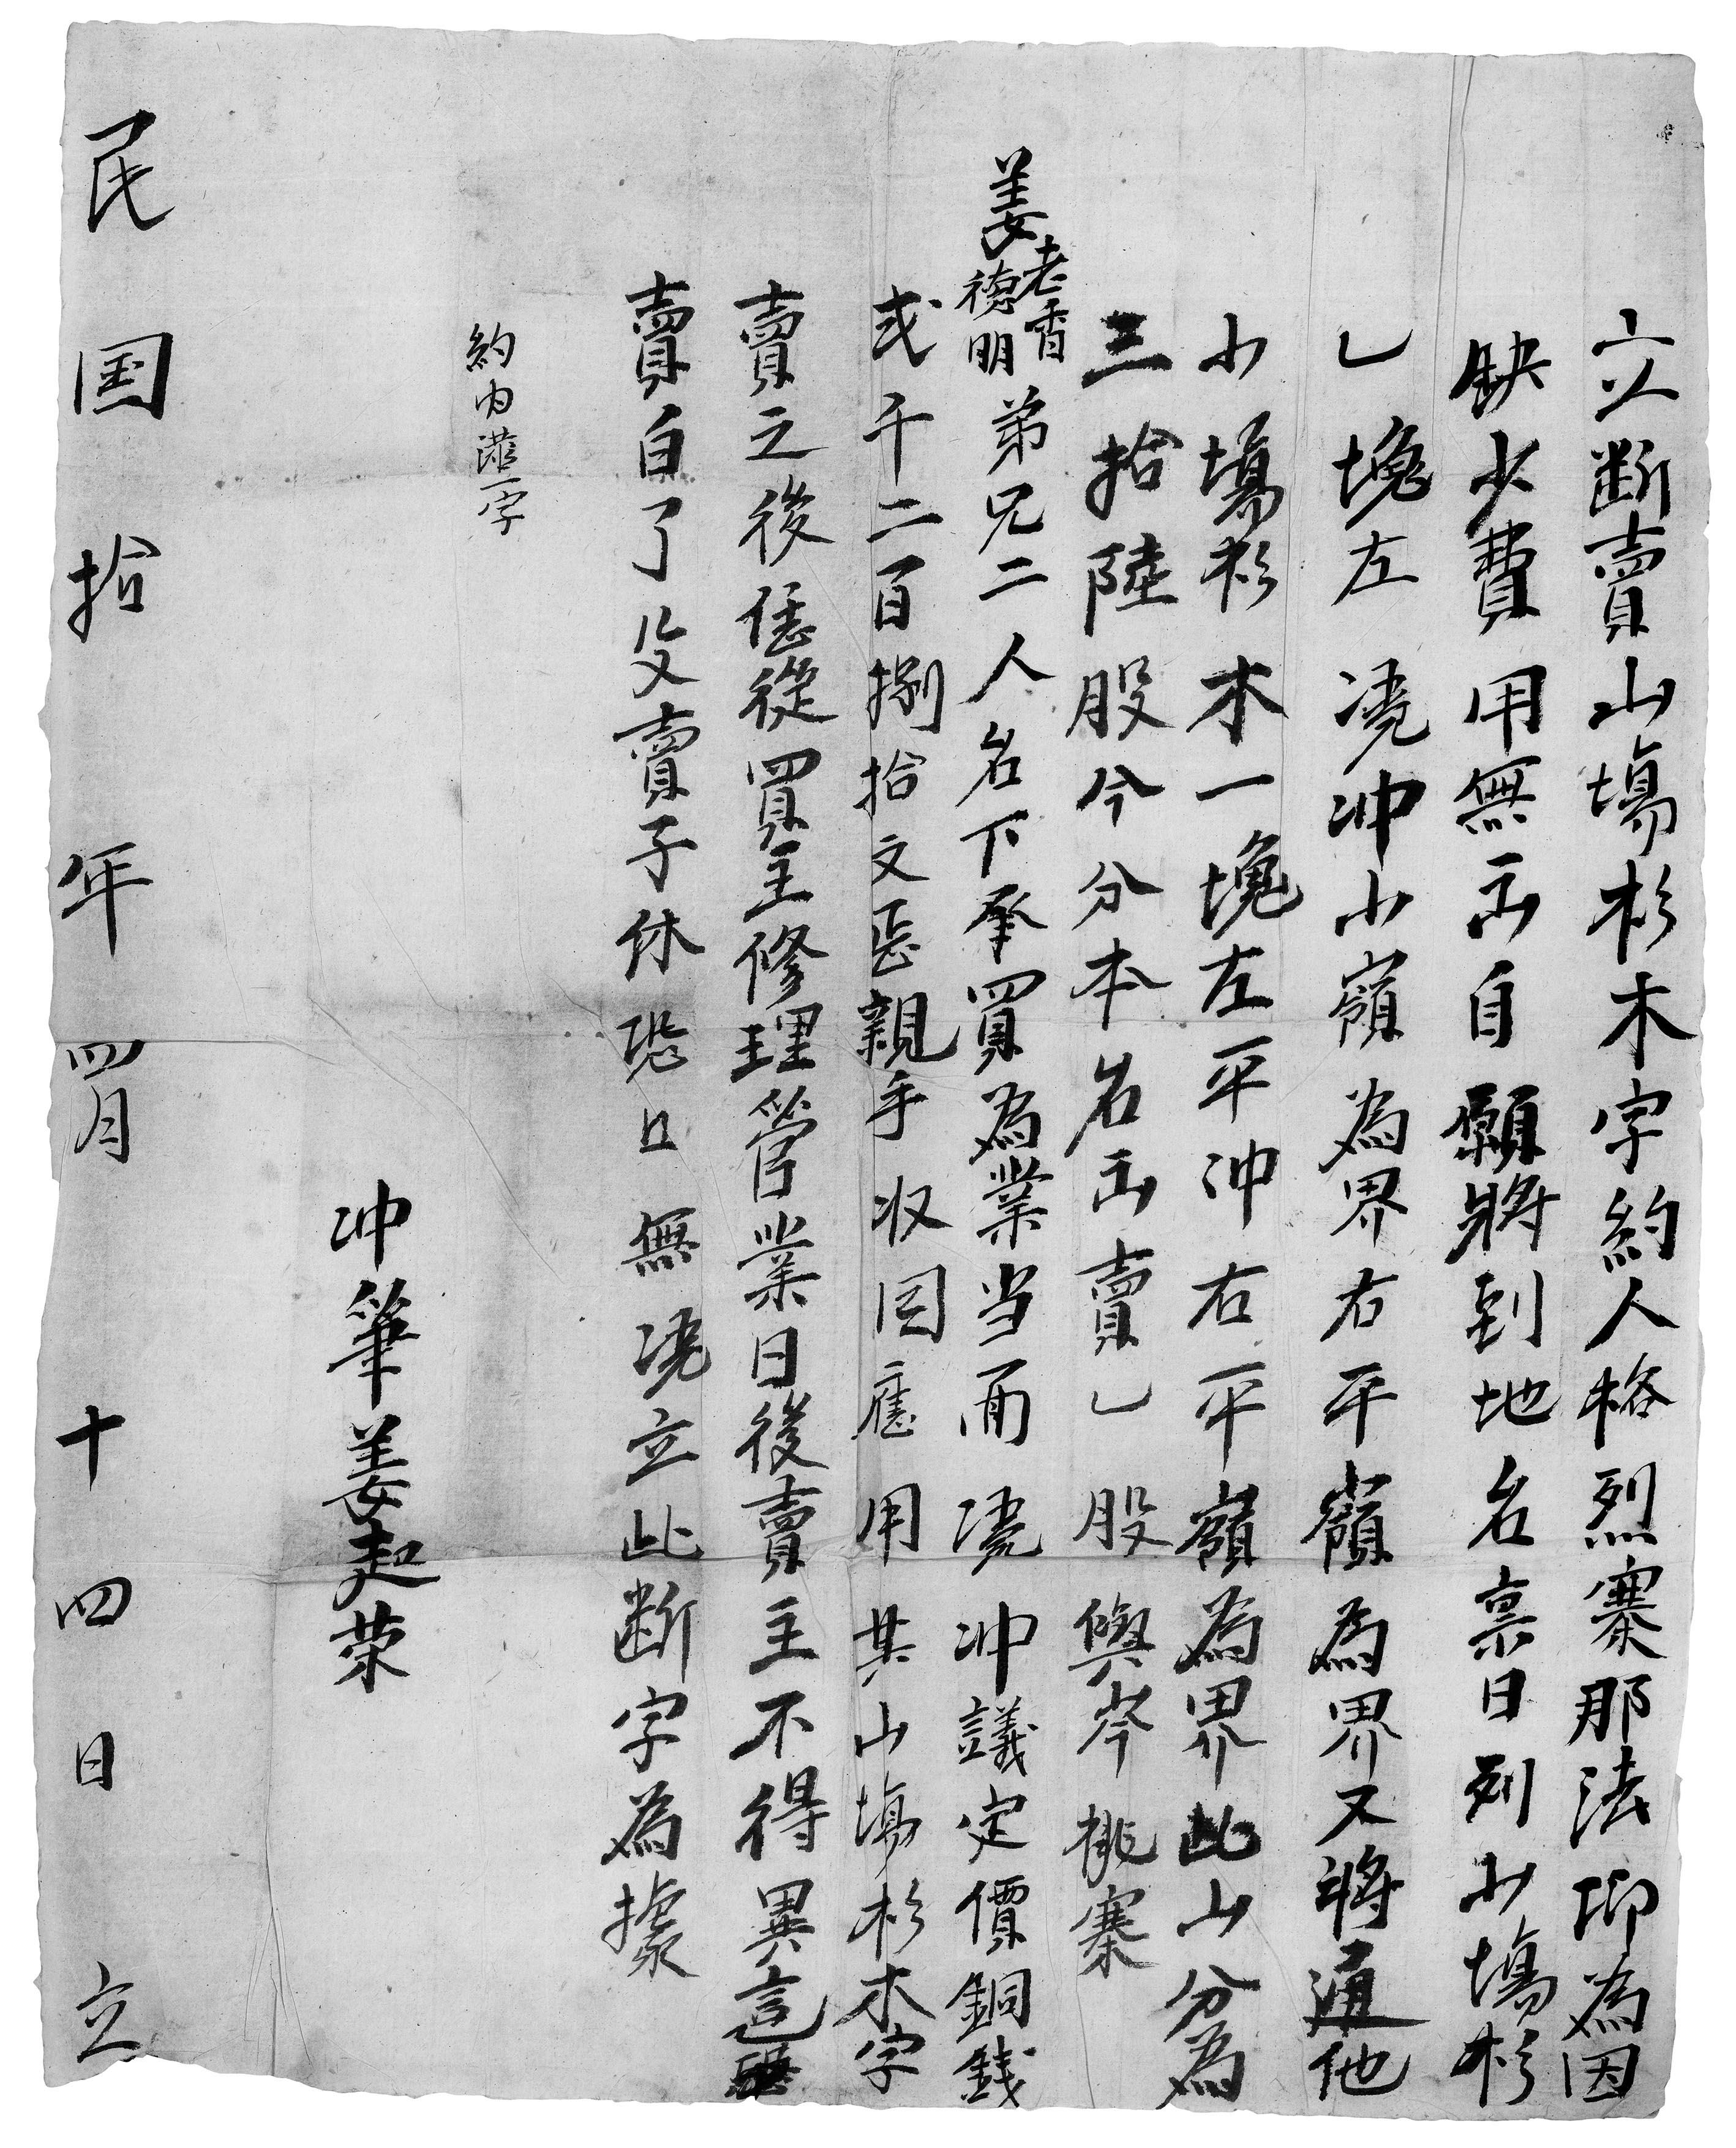 立断賣山場杉木字約人格烈寨那法卬為因
缺少費用無出自願將到地名禀日列山塲杉
乚塊左凴冲小嶺為界右平嶺為界又將通他
小塲杉木一塊左平冲右平嶺為界此山分為
三拾陸股今分本名出賣乚股與岑桃寨
姜老香德明弟兄二人名下承買為業当面凴冲議定價銅銭
弍千二百捌拾文㤙親手收回應用其山塲杉木字
賣之後恁從買主修理管業日後賣主不得異言
賣自了父賣子休恐口無凴立此断字為據
約内添一字
冲筆姜起荣
民国拾年四月十四日立